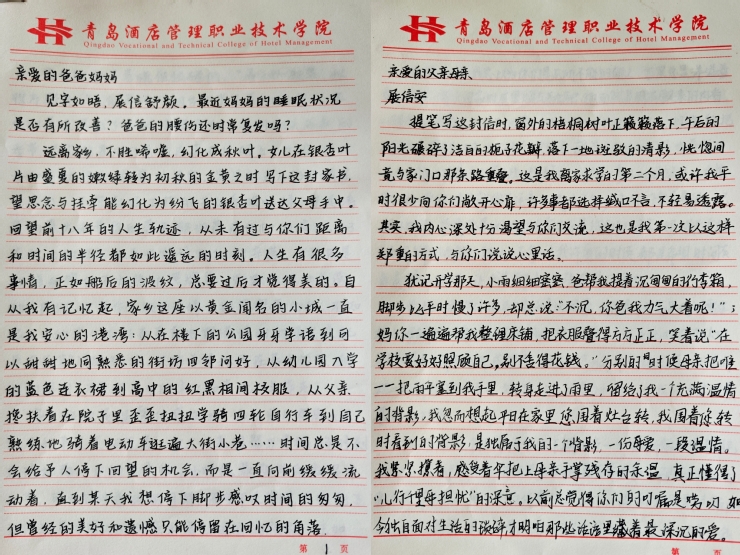 青岛酒店管理职业技术学院
Qingdao Vocational and Technical College of Hotel Management
亲爱的爸爸妈妈
见字如晤，展信舒颜。最近妈妈的睡眠状况
是否有所改善？爸爸的腰伤还时常复发吗？
远离家乡，不胜唏嘘，幻化成秋叶。女儿在银杏叶
片由盛夏的嫩绿转为初秋的金黄之时写下这封家书，
望思念与挂牵能幻化为纷飞的银杏叶送达父母手中。
回望前十八年的人生轨迹，从未有过与你们距离
和时间的半径都如此遥远的时刻。人生有很多
事情，正如船后的波纹，总要过后才觉得美的。自
从我有记忆起，家乡这座以黄金闻名的小城一直
是我安心的港湾：从在楼下的公园牙牙学语到可
以甜甜地同熟悉的街坊四邻问好，从幼儿园入学
的蓝色连衣裙到高中的红黑相间校服，从父亲
搀扶着在院子里歪歪扭扭学骑四轮自行车到自己
熟练地骑着电动车逛遍大街小巷……时间总是不
会给予人停下回望的机会，而是一直向前缓缓流
动着，直到某天我想停下脚步感叹时间的匆匆，
但曾经的美好和遗憾只能停留在回忆的角落。
第 1 页
青岛酒店管理职业技术学院
Qingdao Vocational and Technical College of Hotel Management
亲爱的父亲母亲、
展信安
提笔写这封信时，窗外的梧桐树叶正簌簌落下，午后的
阳光碾碎了洁白的栀子花瓣，落下一地斑驳的清影，恍惚间
竟与家门口那条路重叠。这是我离家求学的第二个月，或许我平
时很少向你们敞开心扉，许多事都选择缄口不言，不轻易透露。
其实，我内心深处十分渴望与你们交流，这也是我第一次以这样
郑重的方式，与你们说说心里话。
犹记开学那天，小雨细细密密，爸帮我提着沉甸甸的行李箱，
脚步比平时慢了许多，却总说：“不沉，你爸我力气大着呢！”；
妈你一遍遍帮我整理床铺，把衣服叠得方方正正，笑着说“在
学校要好好照顾自己，别不舍得花钱。”分别的时候母亲把唯
一一把雨伞塞到我手里，转身走进了雨里，留给了我一个充满温情
的背影，我忽而想起平日在家里您围着灶台转，我围着您转
时看到的背影，是独属于我的一个背影，一份母爱，一段温情。
我紧紧攥着，感受着伞把上母亲手掌残存的余温，真正懂得了
“儿行千里母担忧”的深意。以前总觉得你们的叮嘱是唠叨，如
今独自面对生活的琐碎才明白那些话语里藏着最深沉的爱。
第 页